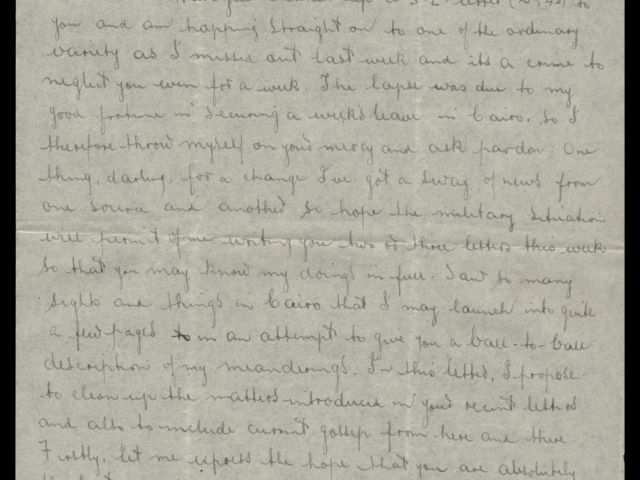 to
you and am hopping straight on to one of the ordinary
variety as I missed out last week and its a crime to
neglect you even for a week. The lapse was due to my
good fortune in securing a week's leave in Cairo, so I
therefore throw myself on your mercy and ask pardon. One
thing, darling, for a change I've got a swag of news from
one source and another so hope the military situation
will permit of me writing you two or three letters this week
so that you may know my doings in full. Saw so many
sights and things in Cairo that I may launch into quite
a few pages in an attempt to give you a ball-to-ball
description of my meanderings. In this letter, I propose
to clean up the matters introduced in your recent letters
and also to include current gossip from here and there.
Firstly, let me express the hope that you are absolutely